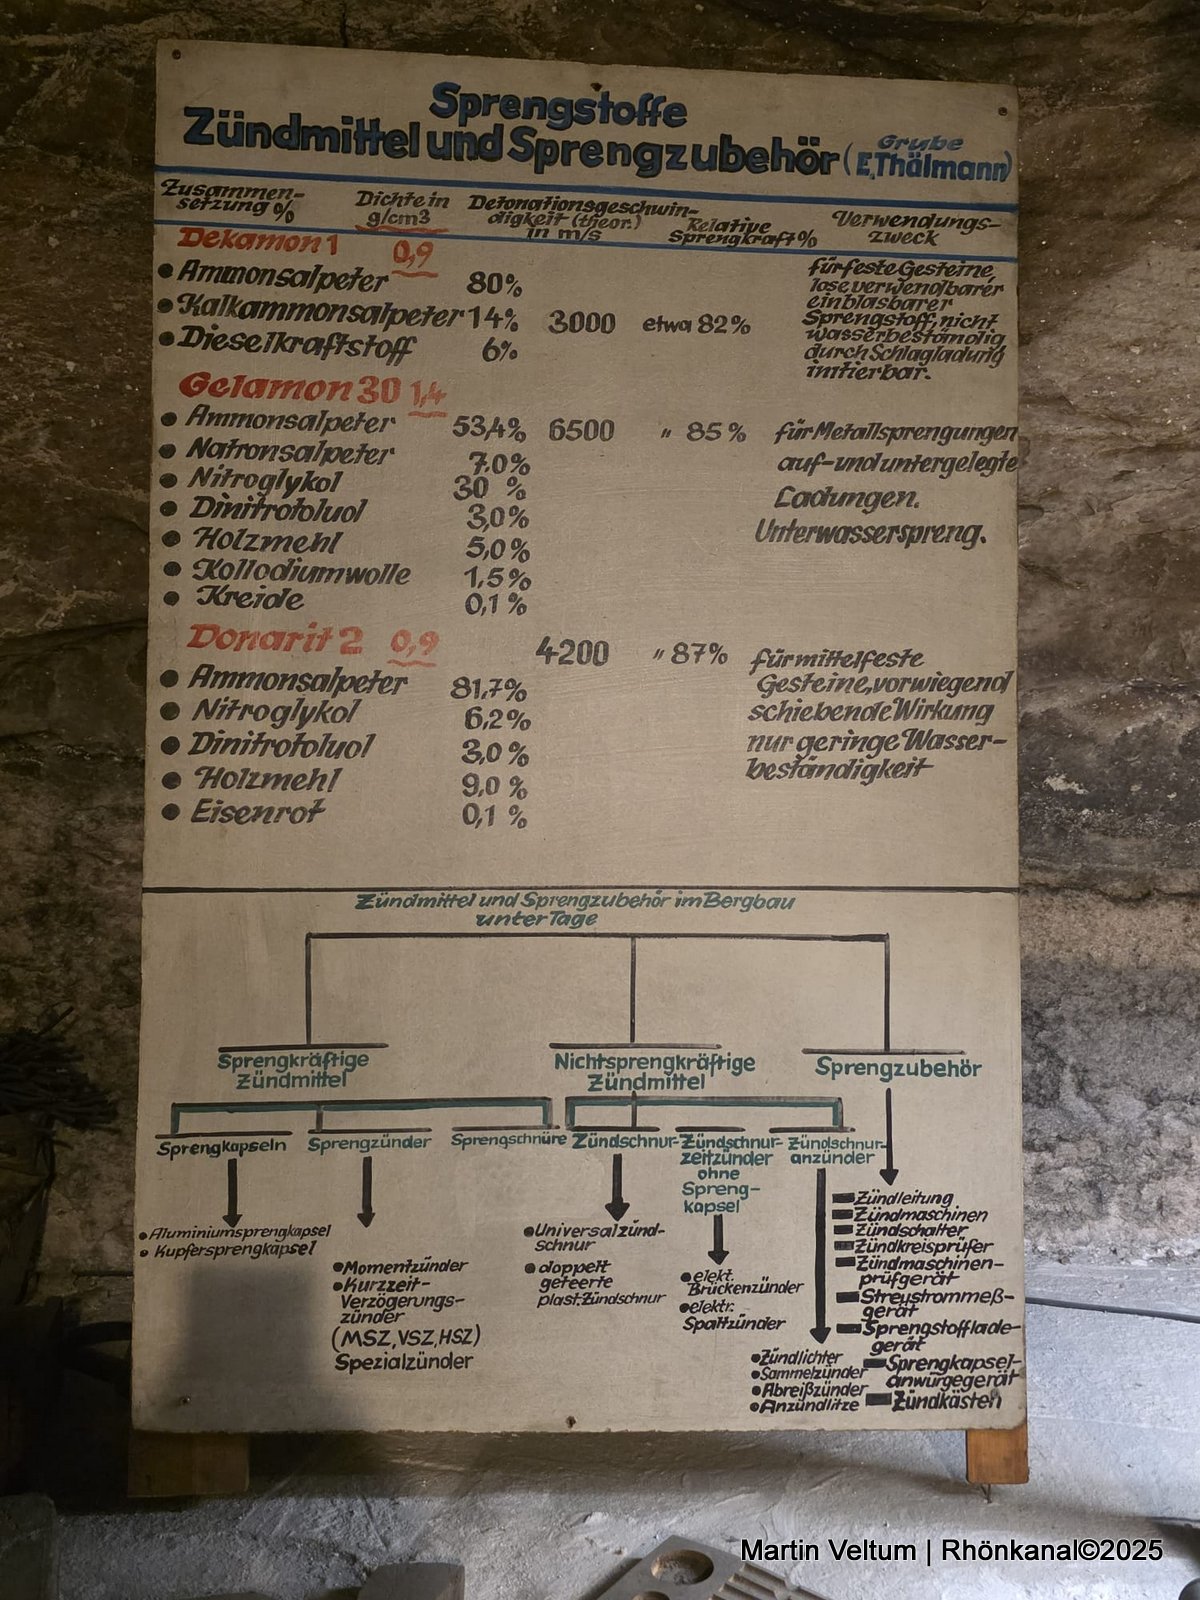 Sprengstoffe
Zündmittel und Sprengzubehör (Grube E,Thälmann)
Zusammen-
setzung %
Dichte in
g/cm3
Detonationsgeschwin-
digkeit (theor.)
in m/s
Relative
Sprengkraft %
Verwendungs-
zweck
Dekamon 1 0,9
• Ammonsalpeter 80%
• Kalkammonsalpeter 14% 3000 etwa 82%
• Dieselkraftstoff 6%
für feste Gesteine,
lose verwendbarer
einblasbarer
Sprengstoff, nicht
wasserbeständig
durch Schlagladung
initierbar.
Gelamon 30 1,4
• Ammonsalpeter 53,4% 6500 " 85% für Metallsprengungen
• Natronsalpeter 7,0% auf- und untergelegte
• Nitroglykol 30 % Ladungen.
• Dinitrotoluol 3,0% Unterwasserspreng.
• Holzmehl 5,0%
• Kollodiumwolle 1,5%
• Kreide 0,1%
Donarit 2 0,9 4200 " 87% für mittelfeste
• Ammonsalpeter 81,7% Gesteine, vorwiegend
• Nitroglykol 6,2% schiebende Wirkung
• Dinitrotoluol 3,0% nur geringe Wasser-
• Holzmehl 9,0 % beständigkeit
• Eisenrot 0,1 %
Zündmittel und Sprengzubehör im Bergbau
unter Tage
Sprengkräftige
Zündmittel
Nichtsprengkräftige
Zündmittel
Sprengzubehör
Sprengkapseln
Sprengzünder
Sprengschnüre
Zündschnur-
Zündschnur-
zeitzünder
ohne
Spreng-
kapsel
Zündschnur-
anzünder
• Aluminiumsprengkapsel
• Kupfersprengkapsel
• Momentzünder
• Kurzzeit-
Verzögerungs-
zünder
(MSZ, VSZ, HSZ)
Spezialzünder
• Universalzünd-
schnur
• doppelt
geteerte
plast. Zündschnur
• elekt.
Brückenzünder
• elektr.
Spaltzünder
• Zündlichter
• Sammelzünder
• Abreißzünder
• Anzündlitze
Zündleitung
Zündmaschinen
Zündschalter
Zündkreisprüfer
Zündmaschinen-
prüfgerät
Streustrommeß-
gerät
Sprengstofflade-
gerät
Sprengkapsel-
anwürgegerät
Zündkästen
Martin Veltum | Rhönkanal©2025